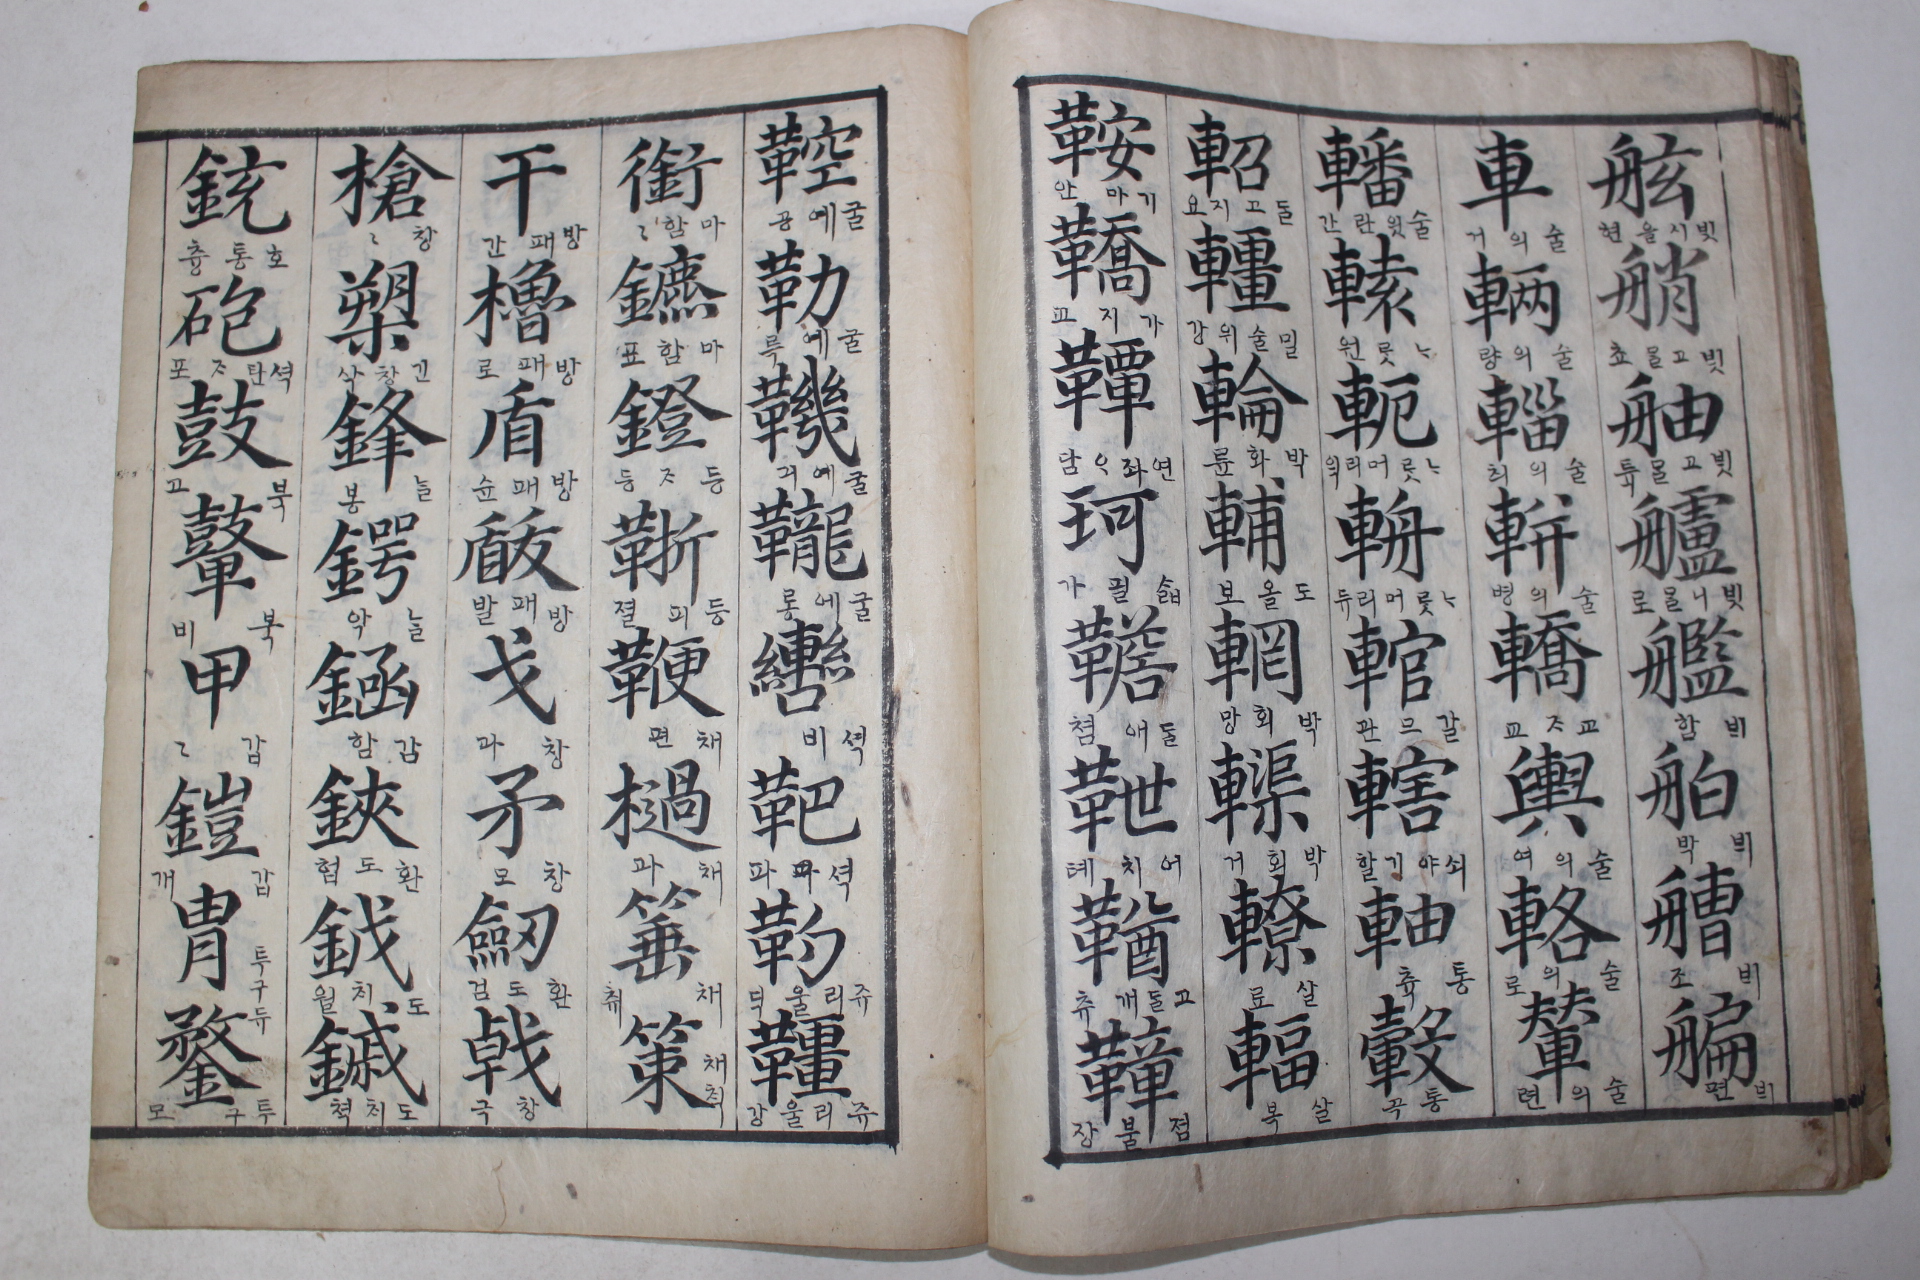 舷 빗시울현 艄 빗고믈쵸 舳 빗고믈튝 艫 빗니믈로 艦 비함 舶 븨박 艚 비조 艑 븨편
車 술의거 輛 술의량 輜 술의츼 軿 술의병 轎 교ᄌ교 輿 술의여 輅 술의로 輦 술의련
轓 술윗란간 轅 릇원 軛 릇머리윅 輈 릇머리듀 輨 갈므관 轄 쇠야기할 軸 통츅 轂 통곡
軺 돌고지요 밀술위강 輪 박화륜 輔 도올보 輞 박회망 박회거 轑 살료 輻 살복
鞍 기마안 鞽 가지교 연좌 담 珂 가 韂 돌애쳠 靾 어치톄 鞧 고돌개츄 졈불쟝
鞚 굴예공 勒 굴예륵 鞿 굴예긔 䪊 굴에롱 轡 셕비 靶 셕파 靮 쥬리울뎍 韁 쥬리울강
銜 마함〻 鑣 마함표 鐙 등ᄌ등 등피졀 鞭 채편 檛 채과 箠 채츄 策 채칙
干 방패간 櫓 방패로 盾 방패슌 瞂 방패발 戈 창과 矛 창모 劒 환도검 戟 창극
槍 창〻 槊 긴창삭 鋒 늘봉 鍔 늘악 감함 鋏 환도협 鉞 도치월 鏚 도치쳑
銃 호통츙 砲 셕탄ᄌ포 鼓 북고 鼙 북비 甲 갑〻 鎧 갑개 冑 투구듀 鍪 투구모